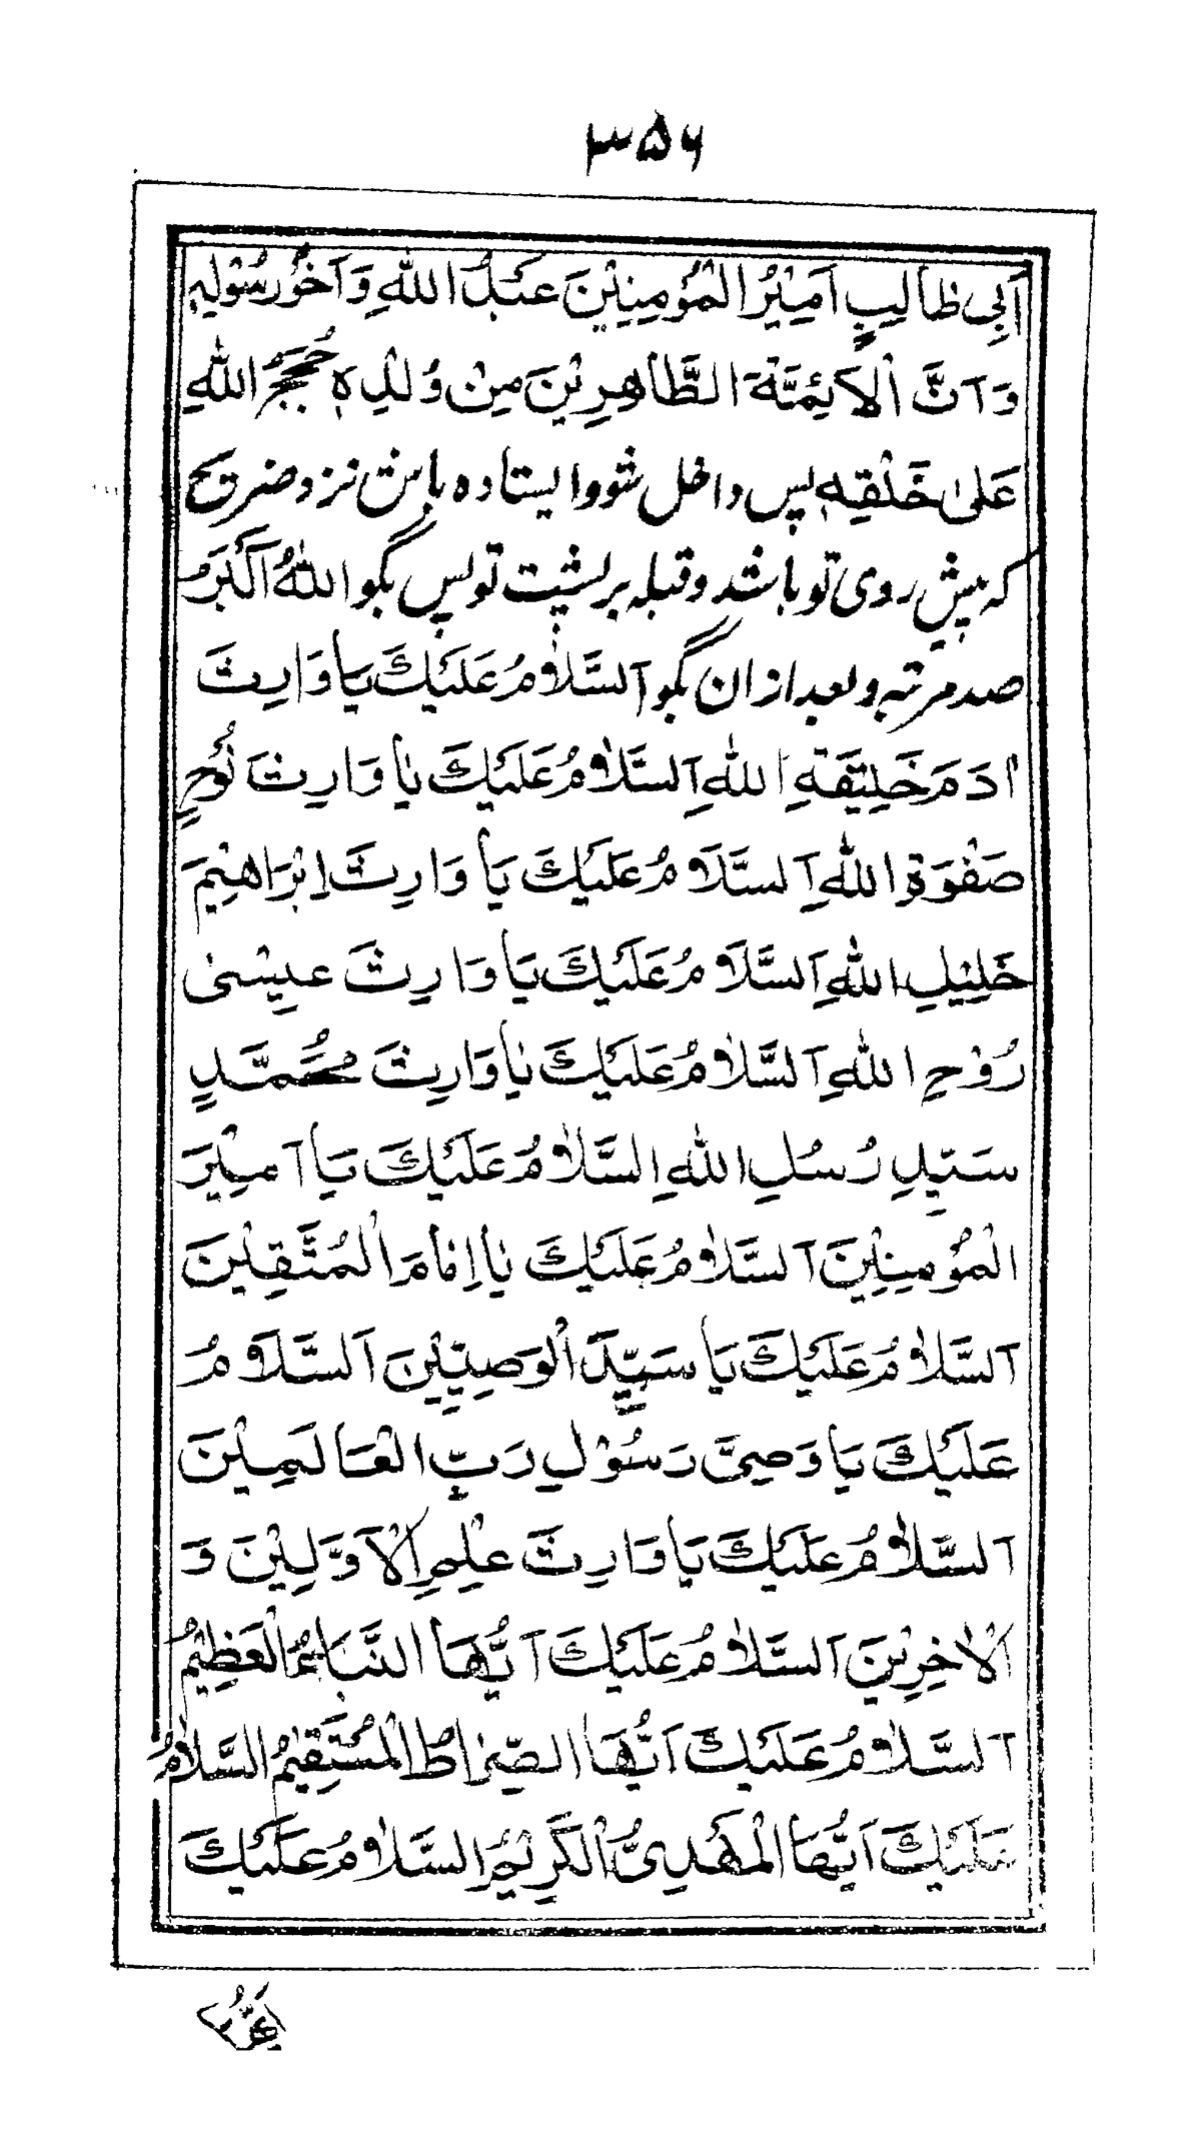 ۳۵۶
اَبِی طَالِبٍ اَمِیْرُ الْمُؤْمِنِیْنَ عَبْدُ اللّٰهِ وَ اَخُوْ رَسُوْلِهٖ
وَ اَنَّ الْاَئِمَّةَ الطَّاهِرِیْنَ مِنْ وُلْدِهٖ حُجَجُ اللّٰهِ
عَلیٰ خَلْقِهٖ پس داخل شو و ایستاده باش نزد ضریح
که پیش روی تو باشد و قبله بر پشت تو پس بگو اللّٰهُ اَکْبَرُ
صد مرتبه و بعد از ان بگو اَلسَّلَامُ عَلَیْكَ یَا وَارِثَ
اٰدَمَ خَلِیْفَةِ اللّٰهِ اَلسَّلَامُ عَلَیْكَ یَا وَارِثَ نُوْحٍ
صَفْوَةِ اللّٰهِ اَلسَّلَامُ عَلَیْكَ یَا وَارِثَ اِبْرَاهِیْمَ
خَلِیْلِ اللّٰهِ اَلسَّلَامُ عَلَیْكَ یَا وَارِثَ عِیْسیٰ
رُوْحِ اللّٰهِ اَلسَّلَامُ عَلَیْكَ یَا وَارِثَ مُحَمَّدٍ
سَیِّدِ رُسُلِ اللّٰهِ السَّلَامُ عَلَیْكَ یَا اَمِیْرَ
الْمُؤْمِنِیْنَ اَلسَّلَامُ عَلَیْكَ یَا اِمَامَ الْمُتَّقِیْنَ
اَلسَّلَامُ عَلَیْكَ یَا سَیِّدَ الْوَصِیِّیْنَ اَلسَّلَامُ
عَلَیْكَ یَا وَصِیَّ رَسُوْلِ رَبِّ الْعَالَمِیْنَ
اَلسَّلَامُ عَلَیْكَ یَا وَارِثَ عِلْمِ الْاَوَّلِیْنَ وَ
الْاٰخِرِیْنَ اَلسَّلَامُ عَلَیْكَ اَیُّهَا النَّبَاءُ الْعَظِیْمُ
اَلسَّلَامُ عَلَیْكَ اَیُّهَا الصِّرَاطُ الْمُسْتَقِیْمُ السَّلَامُ
عَلَیْكَ اَیُّهَا الْمَهْدِیُّ الْکَرِیْمُ السَّلَامُ عَلَیْكَ